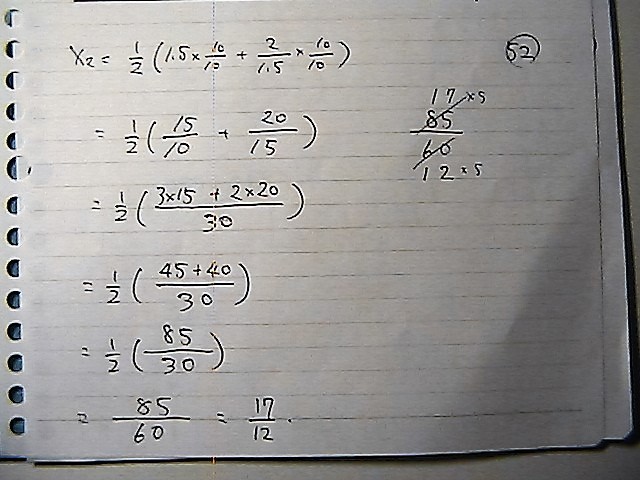 X₂ = 1/2 (1.5 × 10/10 + 2/1.5 × 10/10)
52
= 1/2 (15/10 + 20/15)
17 × 5
85
60
12 × 5
= 1/2 ((3×15 + 2×20)/30)
= 1/2 ((45+40)/30)
= 1/2 (85/30)
= 85/60 = 17/12.